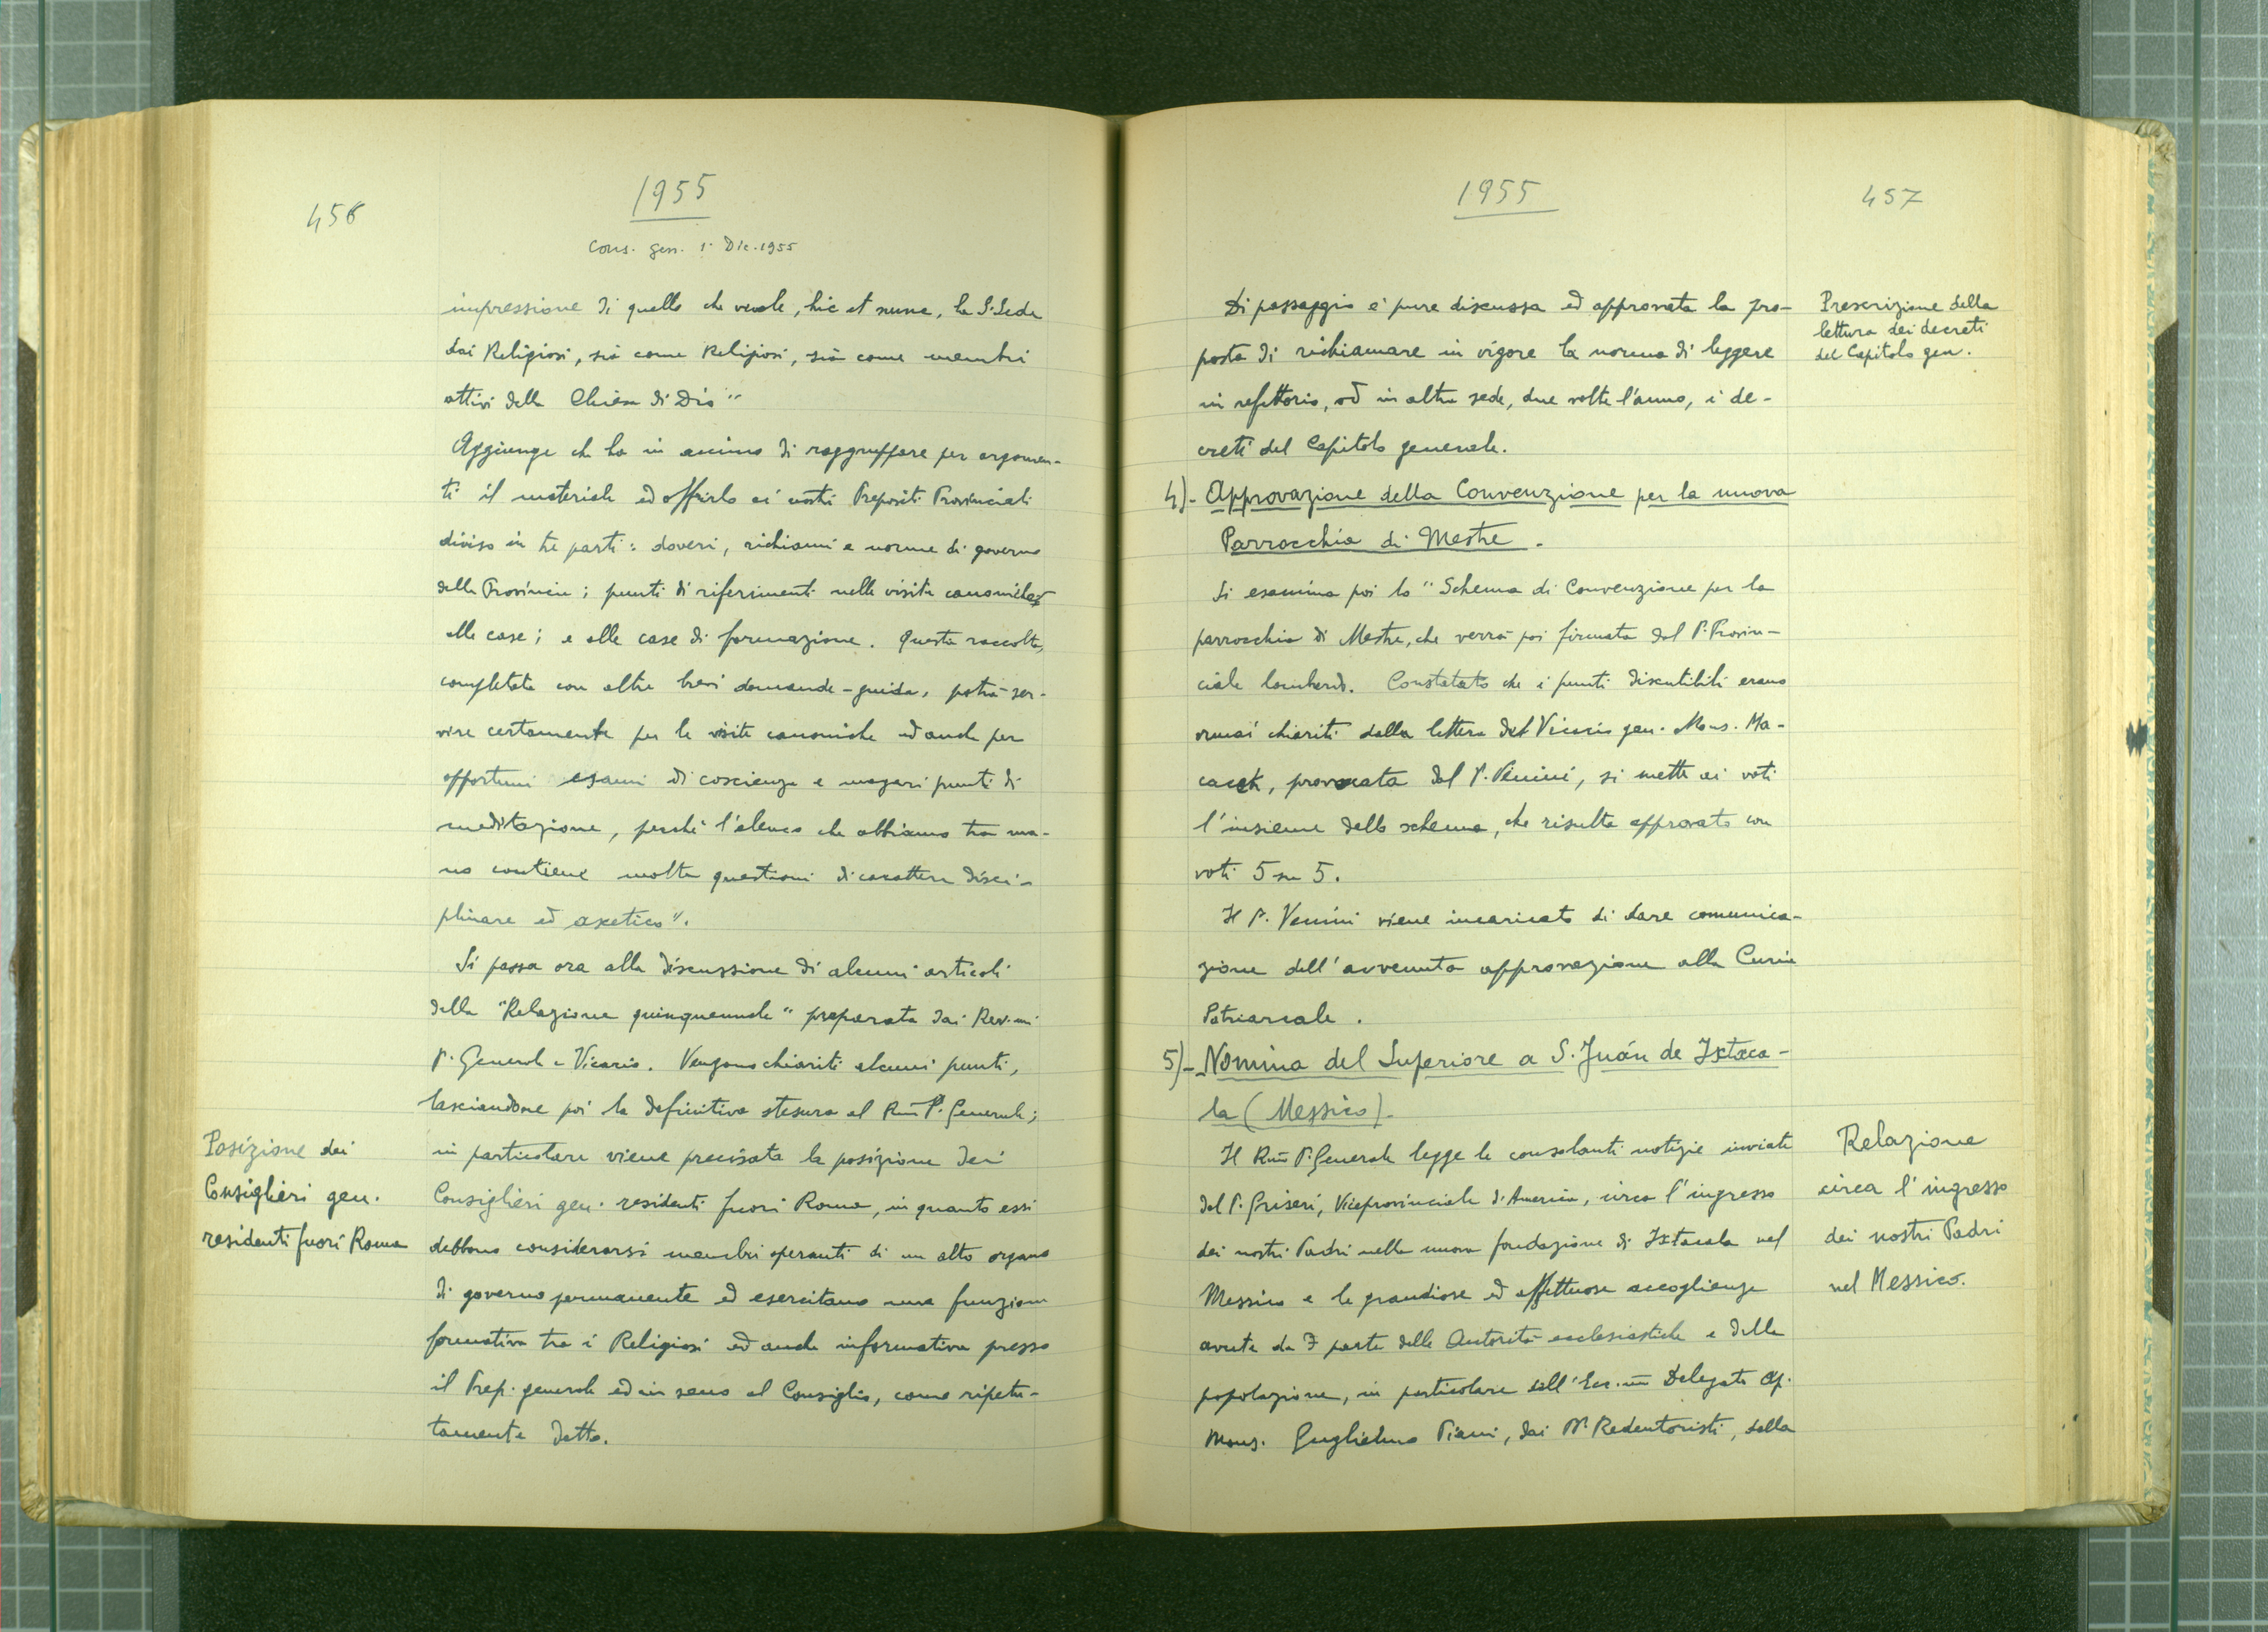 456
1955
Cons. gen. 1. Dic. 1955
impressione di quello che vuole, hic et nunc, la S. Sede
dai Religiosi, sia come Religiosi, sia come membri
attivi della Chiesa di Dio"
Aggiunge che ha in animo di raggruppare per argomen-
ti il materiale ed offrirlo ai nostri Prepositi Provinciali
diviso in tre parti: doveri, richiami e norme di governo
della Provincia; punti di riferimenti nelle visite canoniche
alle case; e alle case di formazione. Questa raccolta,
completata con altre brevi domande-guida, potrà ser-
vire certamente per le visite canoniche ed anche per
opportuni esami di coscienza e magari punti di
meditazione, perché l'elenco che abbiamo tra ma-
no contiene molte questioni di carattere disci-
plinare ed ascetico".
Si passa ora alla discussione di alcuni articoli
della "Relazione quinquennale" preparata dai Rev.mi
P. Generale e Vicario. Vengono chiariti alcuni punti,
lasciandone poi la definitiva stesura al Rmo P. Generale;
in particolare viene precisata la posizione dei
Consiglieri gen. residenti fuori Roma, in quanto essi
debbono considerarsi membri operanti di un alto organo
di governo permanente ed esercitano una funzione
formativa tra i Religiosi ed anche informativa presso
il Prep. generale ed in seno al Consiglio, come ripetu-
tamente detto.
Posizione dei
Consiglieri gen.
residenti fuori Roma
1955
457
Di passaggio è pure discussa ed approvata la pro-
posta di richiamare in vigore la norma di leggere
in refettorio, od in altra sede, due volte l'anno, i de-
creti del Capitolo generale.
Prescrizione della
lettura dei decreti
del Capitolo gen.
4)- Approvazione della Convenzione per la nuova
Parrocchia di Mestre.
Si esamina poi lo "Schema di Convenzione per la
parrocchia di Mestre, che verrà poi firmata dal P. Provin-
ciale lombardo. Constatato che i punti discutibili erano
ormai chiariti dalla lettera del Vicario gen. Mons. Ma-
cacek, provocata dal P. Venini, si mette ai voti
l'insieme dello schema, che risulta approvato con
voti 5 su 5.
Il P. Venini viene incaricato di dare comunica-
zione dell'avvenuta approvazione alla Curia
Patriarcale.
5)- Nomina del Superiore a S. Juán de Ixtaca-
la (Messico).
Il Rmo P. Generale legge le consolanti notizie inviate
dal P. Griseri, Viceprovinciale d'America, circa l'ingresso
dei nostri Padri nella nuova fondazione di Ixtacala nel
Messico e le grandiose ed affettuose accoglienze
avute da parte delle Autorità ecclesiastiche e della
popolazione, in particolare dall'Ecc.mo Delegato Ap.
Mons. Guglielmo Piani, dai PP. Redentoristi, dalla
Relazione
circa l'ingresso
dei nostri Padri
nel Messico.